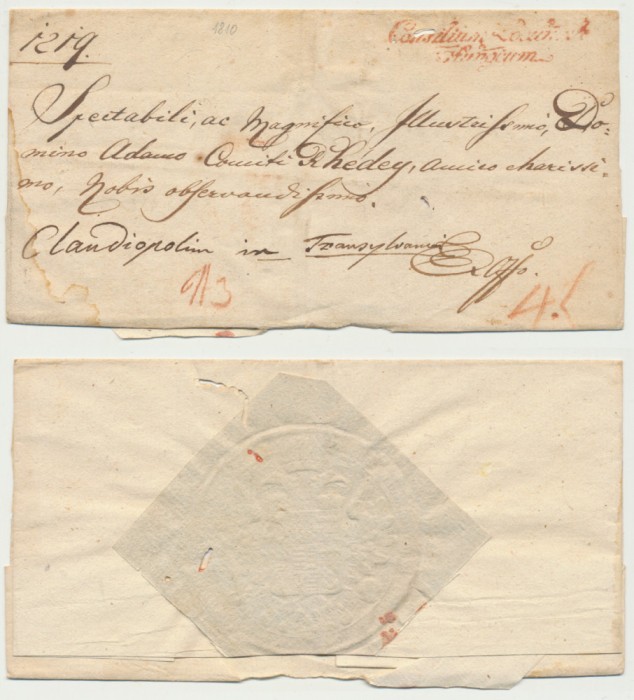 1219.
1810
Consilium
Spectabili, ac Magnifico, Illustrissimo, Do-
mino Adamo Comiti Rhedey, amico charissi-
mo, Nobis observandissimo.
Claudiopolim in Transylvania
Ex Offo.